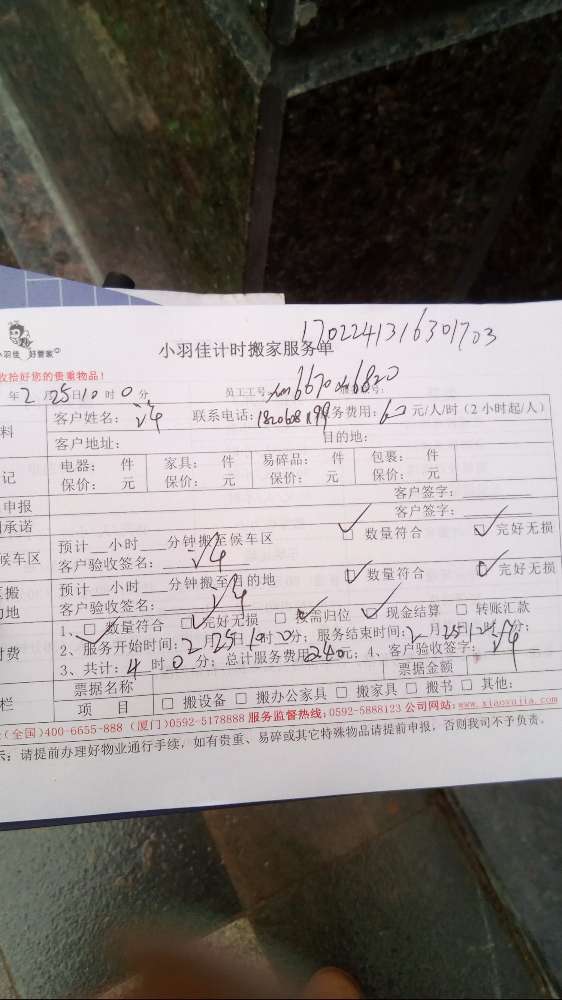 1702241316301703
小羽佳 好管家
小羽佳计时搬家服务单
收拾好您的贵重物品！
年 2 月 25 日 10 时 0 分 员工工号: 6670 6820 号:
料 客户姓名: 联系电话: 务费用: 60 元/人/时（2小时起/人）
客户地址: 目的地:
记 电器: 件 家具: 件 易碎品: 件 包裹: 件
保价: 元 保价: 元 保价: 元 保价: 元
申报 客户签字:
承诺 客户签字:
候车区 预计 小时 分钟搬至候车区 数量符合 完好无损
客户验收签名:
搬 预计 小时 分钟搬至目的地 数量符合 完好无损
的地 客户验收签名:
付费 1、 数量符合 完好无损 按需归位 现金结算 转账汇款
2、服务开始时间: 2 月 25 日 10 时 0 分；服务结束时间: 2 月 25 日 12 时 分；
3、共计: 4 时 0 分；总计服务费用 240 元；4、客户验收签字:
栏 票据名称 票据金额
项 目 搬设备 搬办公家具 搬家具 搬书 其他:
(全国)400-6655-888 (厦门)0592-5178888 服务监督热线: 0592-5888123 公司网站: www.xiaoyujia.com
示: 请提前办理好物业通行手续，如有贵重、易碎或其它特殊物品请提前申报，否则我司不予负责。